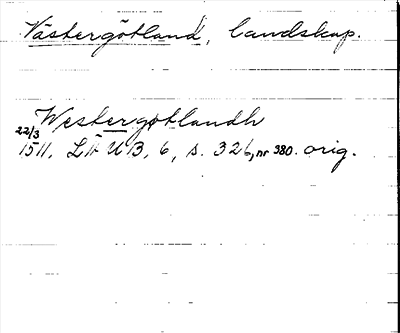 Västergötland, landskap.
Westergøtlandh
22/3
1511. LÄUB, 6, s. 326, nr 380. orig.